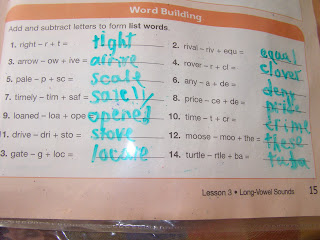 Word Building
Add and subtract letters to form list words.
1. right – r + t = tight
2. rival – riv + equ = equal
3. arrow – ow + ive = arrive
4. rover – r + cl = clover
5. pale – p + sc = scale
6. any – a + de = deny
7. timely – tim + saf =
8. price – ce + de = pride
9. loaned – loa + ope = opened
10. time – t + cr = crime
11. drive – dri + sto = stove
12. moose – moo + the = these
3. gate – g + loc = locate
14. turtle – rtle + ba = tuba
Lesson 3 • Long-Vowel Sounds 15